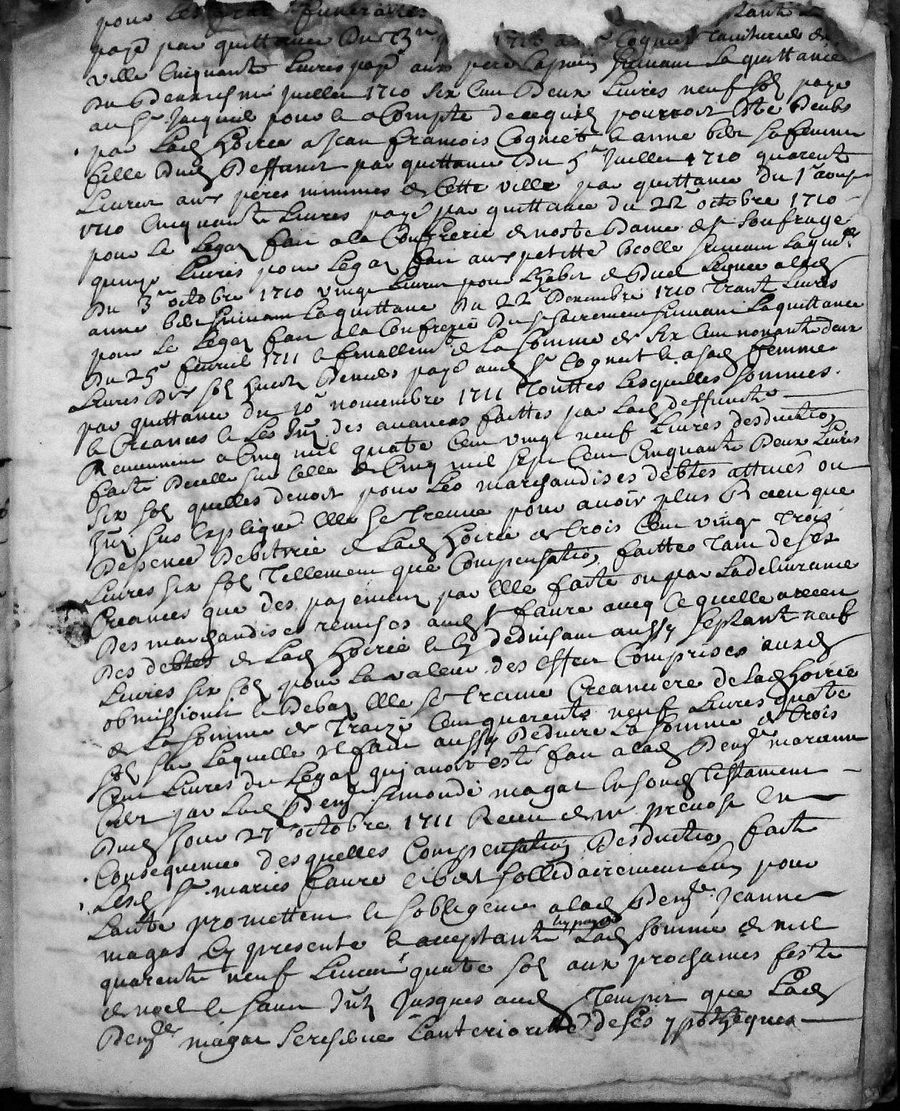 pour les frais funeraires
payé par quittance du 23e 1710 a Cognet
ville Cinquante Livres payé aux peres Capucins suivant la quittance
du juillet 1710 six Cen Deux Livres neuf sol payé
au Sr Jacquil pour le Compte de cequil pourroit estre deub
par Lade hoirie a Jean francois Cognet & anne bibet sa femme
fille dud deffunt par quittance du 5e Juillet 1710 quarente
Livres aux peres minimes de Cette ville par quittance du 1er aoust
1710 Cinquante Livres payé par quittance du 22e octobre 1710
pour le Legat fait a la Confrerie de nostre Dame de Souffrage
quinze Livres pour Legat fait aux petitte Ecolle suivant la quitce
du 3e octobre 1710 vingt Livres pour Lhabit de Duel Leguee a lade
anne bibet suivant la quittance du 22 Decembre 1710 Trante Livres
pour le Legat fait a la Confrerie du St Sacrement suivant la quittance
du 25e fevrier 1711 & finallemt de la somme de six Cen nonante deux
Livres dix sol huit deniers payé aud Sr Cognet & a sad femme
par quittance du 10e novembre 1711 Touttes lesquelles sommes
& Creances & les Jnts des avances faittes par lade deffunte
Reviennent a Cinq mil quatre Cen vingt neuf Livres desduction
faite dicelle sur celle de Cinq mil sept Cen Cinquante Deux Livres
six sol quelles devoit pour les marchandises debtes attives ou
Jnts sus Expliqué Elle se treuve pour avoir plus Receu que
Despencé Debitrice de Lade hoirie de trois Cen vingt trois
Livres six sol Tellement que Compensation faittes Tant de ses
Creances que des payement par Elle faite ou par La delivrance
des marchandises remises aud Sr faure avec Ce quelle a receu
des debtes de Lade hoirie & En deduisant aussy septant neuf
Livres six sol pour la valeur des effets Comprises auxd
obmissions & Debat Elle se treuve Creanciere de lade hoirie
de La somme de Traize Cen quarente neuf Livres quatre
sol sur Laquelle Il faut aussy deduire La somme de trois
Cen Livres du Legat qui avoit esté fait a lade Demlle marianne
bibet par Lade Demlle Simonde magat En son Testament
Dud Jour 27e octobre 1711 Receu de me prevost En
Consequence desquelles Compensation Desduction faitte
Lesd Sr mariés faure & bibet sollidairement pour
Lautre promettent & soblegent a lade Demlle Jeanne
magat Cy presente & acceptante luy payer Lade somme de mil
quarente neuf Livres quatre sol aux prochaines feste
de noel & sans Jnts Jusques aud Temps que Lade
Demlle magat se reserve Lanteriorité de ses ypotheques